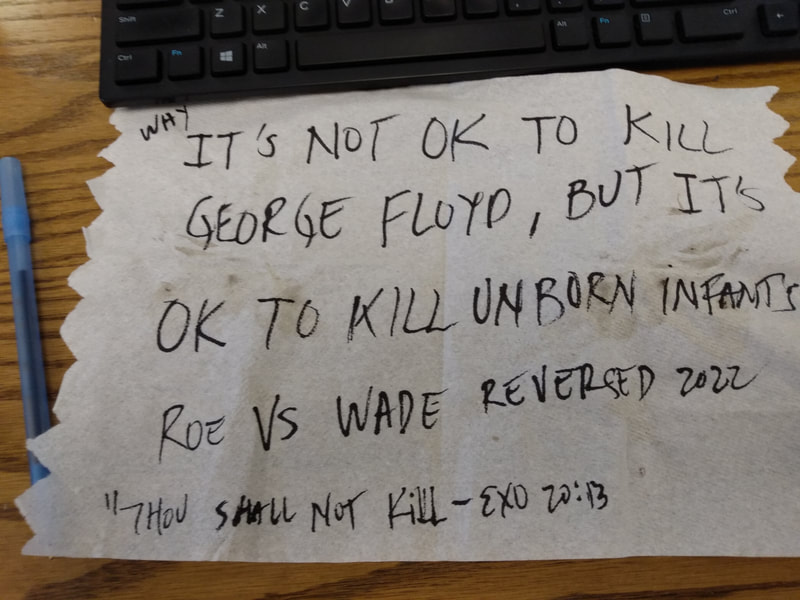 Shift Z X C V B N M Alt Fn Ctrl
Ctrl Fn Alt
WHY
IT'S NOT OK TO KILL
GEORGE FLOYD, BUT IT'S
OK TO KILL UNBORN INFANTS
ROE VS WADE REVERSED 2022
"THOU SHALL NOT KILL - EXO 20:13